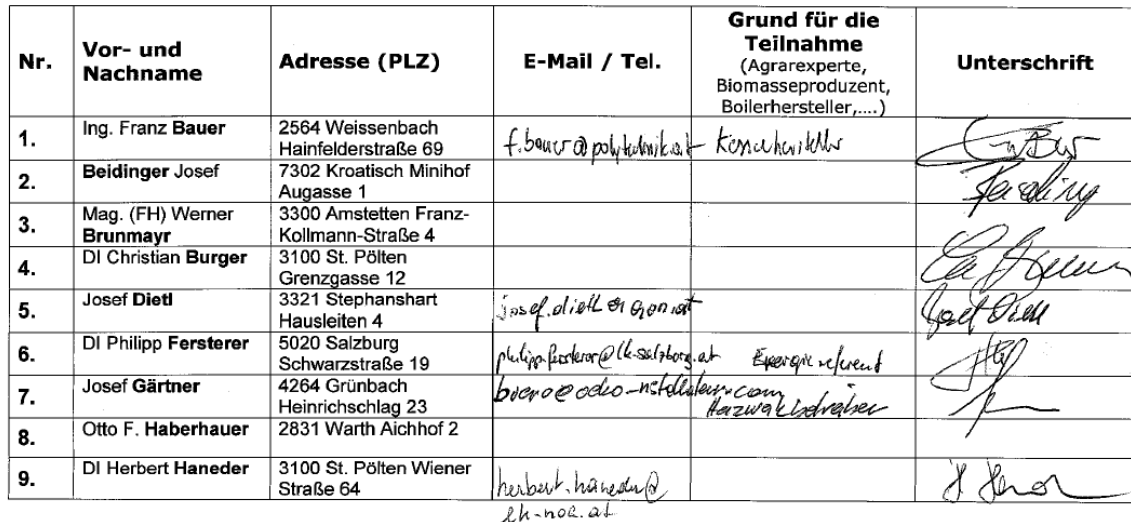 Nr. Vor- und Nachname Adresse (PLZ) E-Mail / Tel. Grund für die Teilnahme (Agrarexperte, Biomasseproduzent, Boilerhersteller,....) Unterschrift
1. Ing. Franz Bauer 2564 Weissenbach f.bauer@polytechnik.at Kesselhersteller
Hainfelderstraße 69
2. Beidinger Josef 7302 Kroatisch Minihof
Augasse 1
3. Mag. (FH) Werner 3300 Amstetten Franz-
Brunmayr Kollmann-Straße 4
4. DI Christian Burger 3100 St. Pölten
Grenzgasse 12
5. Josef Dietl 3321 Stephanshart
Hausleiten 4 Josef Dietl
6. DI Philipp Fersterer 5020 Salzburg
Schwarzstraße 19 philipp.fersterer@lk-salzburg.at Energiereferent
7. Josef Gärtner 4264 Grünbach
Heinrichschlag 23 Heizwerkbetreiber
8. Otto F. Haberhauer 2831 Warth Aichhof 2
9. DI Herbert Haneder 3100 St. Pölten Wiener
Straße 64 herbert.haneder@
lk-noe.at